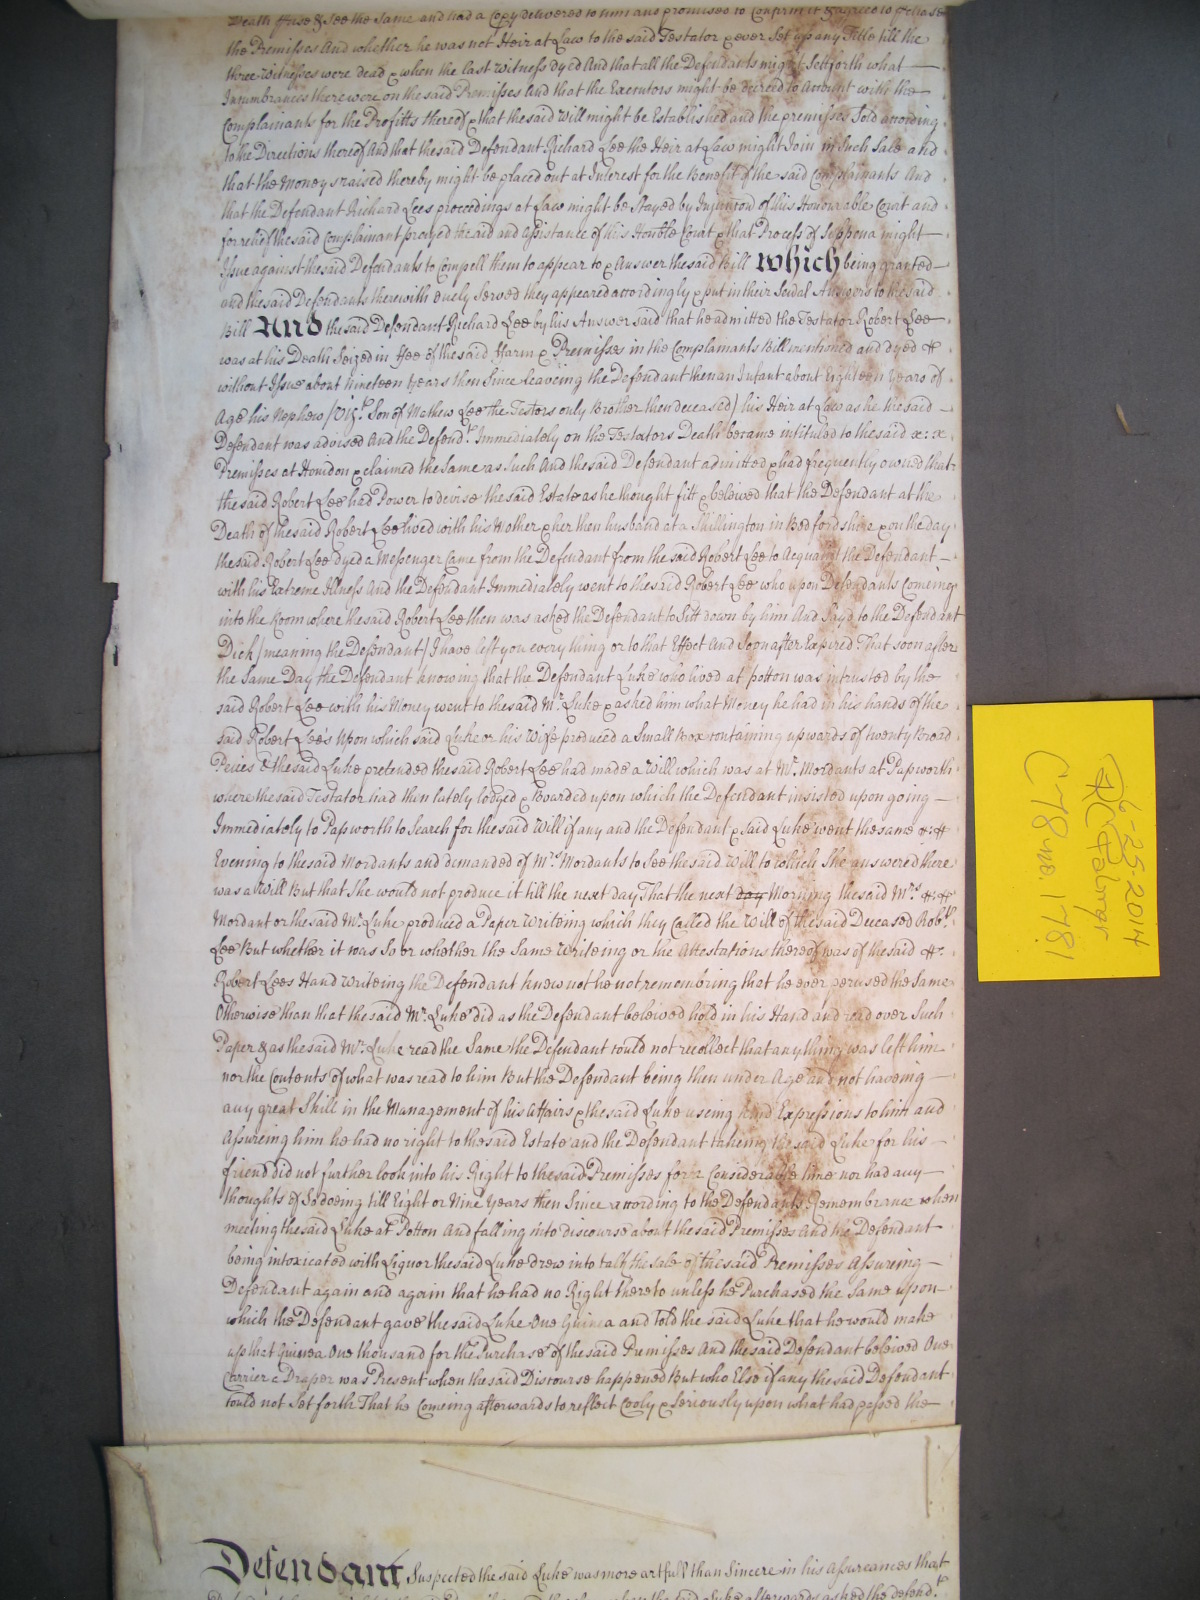 Death Peruse & See the Same and had a Copy delivered to him and promised to Confirm it & agreed to purchase
the Premisses And whether he was not Heir at Law to the said Testator & ever Set up any Title till the
three Witnesses were dead & when the last Witness dyed And that all the Defendants might Sett forth what
Incumbrances there were on the said Premisses And that the Executors might be decreed to Account with the
Complainants for the Profitts thereof & that the said Will might be Established and the premisses Sold according
to the Directions thereof And that the said Defendant Richard Lee the Heir at Law might Join in Such Sale and
that the Moneys raised thereby might be placed out at Interest for the Benefit of the said Complainants And
that the Defendant Richard Lees proceedings at Law might be Stayed by Injunction of this Honourable Court and
for relief the said Complainant prayed the aid and assistance of this Honoble Court & that Process of Subpona might
Issue against the said Defendants to Compell them to appear to & Answer the said Bill Which being granted
and the said Defendants therewith duely Served they appeared accordingly & put in their Sevdal Answers to the said
Bill And the said Defendant Richard Lee by his Answer said that he admitted the Testator Robert Lee
was at his Death Seized in ffee of the said Farm & Premisses in the Complainants Bill mentioned and dyed
without Issue about Nineteen Years then Since leaveing the Defendant then an Infant about Eighteen Years of
Age his Nephew (Vizt. Son of Mathew Lee the Testors only Brother then deceased) his Heir at Law as he the said
Defendant was advised And the Defendt. Immediately on the Testators Death became intituled to the said
Premisses at Honidon & claimed the Same as Such And the said Defendant admitted & had frequently owned that
the said Robert Lee had Power to devise the said Estate as he thought fitt & beleived that the Defendant at the
Death of the said Robert Lee lived with his Mother & her then husband at a Shillington in Bedfordshire & on the day
the said Robert Lee dyed a Messenger Came from the Defendant from the said Robert Lee to Acquaint the Defendant
with his Extreme Illness And the Defendant Immediately went to the said Robert Lee who upon Defendants Comeing
into the Room where the said Robert Lee then was asked the Defendant to Sitt down by him And Sayd to the Defendant
Dick (meaning the Defendant) I have left you every thing or to that Effect And Soon after Expired That soon after
the Same Day the Defendant knowing that the Defendant Luke who lived at potton was intrusted by the
said Robert Lee with his Money went to the said Mr. Luke & asked him what Money he had in his hands of the
said Robert Lee's Upon which said Luke or his Wife produced a Small Box containing upwards of twenty Broad
Peices & the said Luke pretended the said Robert Lee had made a Will which was at Mr. Mordants at Papworth
where the said Testator had then lately lodged & Boarded upon which the Defendant insisted upon going
Immediately to Papworth to Search for the said Will if any and the Defendant & said Luke went the same
Evening to the said Mordants and demanded of Mrs. Mordants to See the said Will to which She answered there
was a Will But that She would not produce it till the next day That the next day Morning the said Mrs
Mordant or the said Mr. Luke produced a Paper Writeing which they Called the Will of the said Deceased Robt.
Lee But whether it was So or whether the Same Writeing or the Attestations thereof was of the said
Robert Lees Hand Writeing the Defendant knew not he not remembring that he ever perused the Same
Otherwise than that the said Mr. Luke did as the Defendant beleived hold in his Hand and read over Such
Paper & as the said Mr. Luke read the Same the Defendant could not recollect that any thing was left him
nor the Contents of what was read to him But the Defendant being then under Age and not haveing
any great Skill in the Management of his Affairs & the said Luke useing kind Expressions to him and
Assureing him he had no right to the said Estate and the Defendant takeing the said Luke for his
friend did not further look into his Right to the said Premisses for a Considerable time nor had any
thoughts of So doeing till Eight or Nine Years then Since according to the Defendants Remembrance when
meeting the said Luke at Potton And falling into discourse about the said Premisses And the Defendant
being intoxicated with Liquor the said Luke drew into talk the sale of the said Premisses Assureing
Defendant again and again that he had no Right thereto unless he Purchased the Same upon
which the Defendant gave the said Luke One Guinea and told the said Luke that he would make
up that Guinea One thousand for the Purchase of the said Premisses And the said Defendant beleived One
Carrier a Draper was Present when the said Discourse happened But who Else if any the said Defendant
could not Set forth That he Comeing afterwards to reflect Cooly & Seriously upon what had passed the
Defendant Suspected the said Luke was more artfull than Sincere in his assureances that
said Luke afterwards asked the defendt.
6-25-2014
C 78 no. 1781